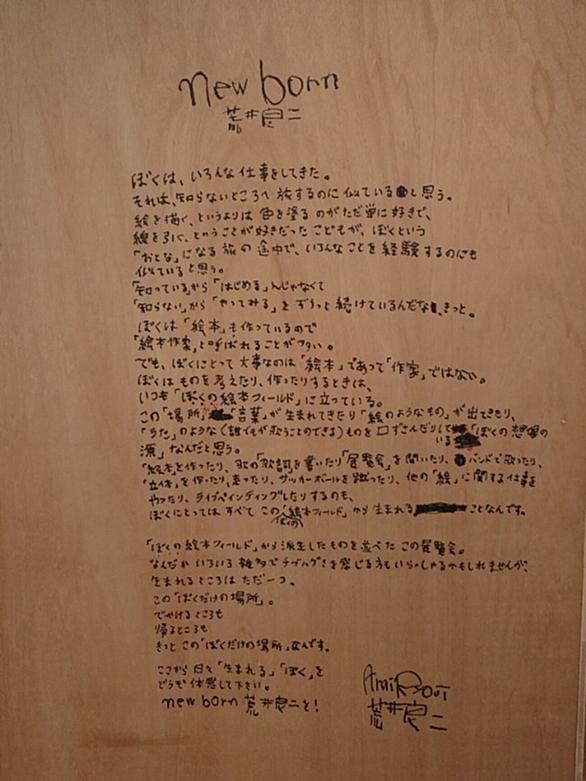 new born
荒井良二
ぼくは、いろんな仕事をしてきた。
それは、知らないところへ旅するのに似ていると思う。
絵を描く、というよりは色を塗るのがただ単に好きで、
線を引く、ということが好きだったこどもが、ぼくという
「おとな」になる旅の途中で、いろんなことを経験するのにも
似ていると思う。
「知っている」から「はじめる」んじゃなくて
「知らない」から「やってみる」をずうっと続けているんだな、きっと。
ぼくは「絵本」も作っているので
「絵本作家」と呼ばれることがタタい。
でも、ぼくにとって大事なのは「絵本」であって「作家」ではない。
ぼくはものを考えたり、作ったりするときは、
いつも「ぼくの絵本フィールド」に立っている。
この「場所」言葉」が生まれてきたり「絵のようなもの」が出てきたり、
「うた」のような(誰でもが歌うことのできる)ものを口ずさんだりして「ぼくの想像の
いる
源」なんだと思う。
「絵本を作ったり、歌の「歌詞」を書いたり「展覧会」を開いたり、バンドで歌ったり、
「立体」を作ったり、走ったり、サッカーボールを蹴ったり、他の「絵」に関する仕事を
やったり、ライブペインティングしたりするのも、
ぼくにとってはすべてこの「絵本フィールド」から生まれることなんです。
「ぼくの絵本フィールド」から派生したものを並べたこの展覧会。
なんだかいろいろ雑多でチグハグさを感じる方もいらっしゃるかもしれませんが、
生まれるところはただ一つ。
この「ぼくだけの場所」。
でかけるところも
帰るところも
きっとこの「ぼくだけの場所」なんです。
ここから日々「生まれる」「ぼく」を
どうぞ体感して下さい。
new born 荒井良二と!
荒井良二